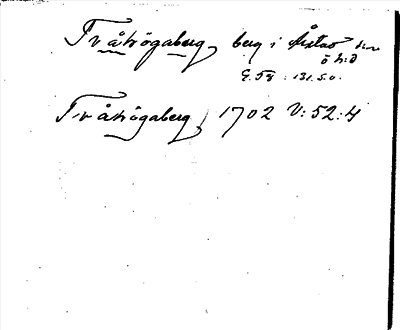 Tvåhögaberg, berg i Åstad sn
ö h:d
G. 58 : 131. S. o.
Tvåhögaberg, 1702 V:52:4